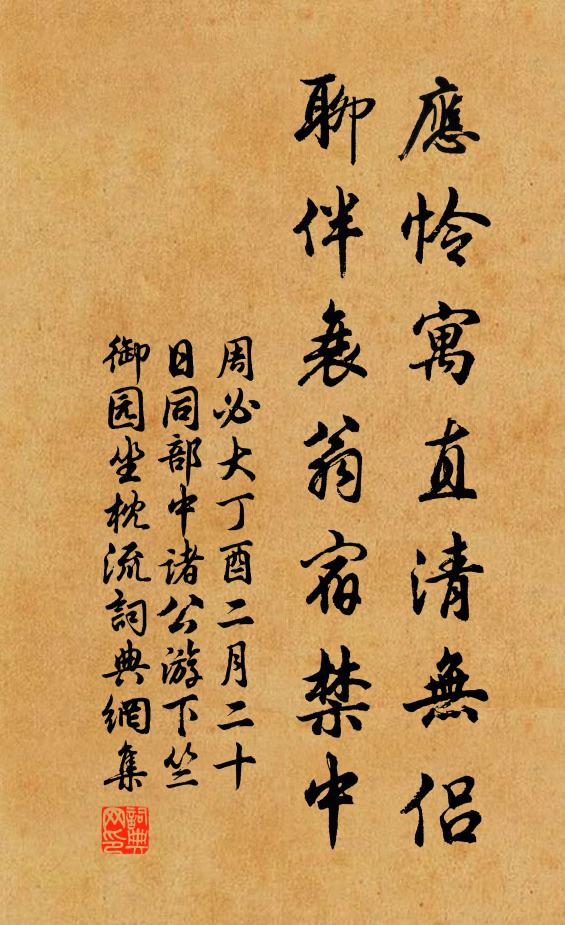 應怜寓直清無侣
聊伴衰翁宿禁中
周必大丁酉二月二十
日同部中诸公游下竺
御园坐枕流詞典網集
詞典网印